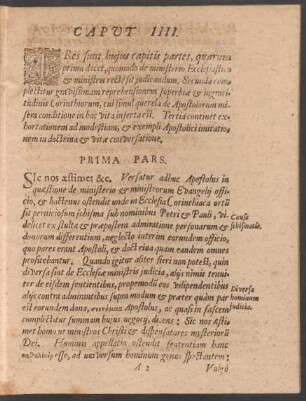 CAPUT IIII.
TRes sunt hujus capitis partes, quarum
prima docet, quomodo de ministerio Ecclesiastico
& ministris recte sit judicandum. Secunda com-
plectitur gravissimam reprehensionem superbiæ & ingrati-
tudinis Corinthiorum, cui simul querela de Apostolorum mi-
sera conditione in hac vita inserta est. Tertia continet ex-
hortationem ad modestiam, & exempli Apostolici imitatio-
nem in doctrina & vitæ conversatione.
PRIMA PARS.
SIc nos æstimet &c. Versatur adhuc Apostolus in
quæstione de ministerio & ministrorum Evangelij offi-
cio, & hactenus ostendit unde in Ecclesia Corinthiaca ortū
sit perniciosum schisma sub nominibus Petri & Pauli, vi-
delicet ex stulta & præpostera admiratione personarum &
donorum differentium, neglecto interim eorundem officio,
quo pares erant Apostoli, & doctrina quam eandem omnes
profitebantur. Quando igitur aliter fieri non potest, quin
diversa sint de Ecclesiæ ministris judicia, alijs nimis tenui-
ter de eisdem sentientibus, propemodum eos vilipendentibus
alijs contra admirantibus supra modum & præter quàm par
est eorundem dona, Apostolus, ac quasi in fascem
complectitur summam hujus negocij, dicens: Sic nos Æsti-
met homo ut ministros Christi & dispensatores mysteriorū
Dei. Hominis appellatio ostendit sententiam hanc
esse, ad universum hominum genus spectantem:
A 2 Vulgò
Causæ
schismatis.
Diversa
hominum
judicia.